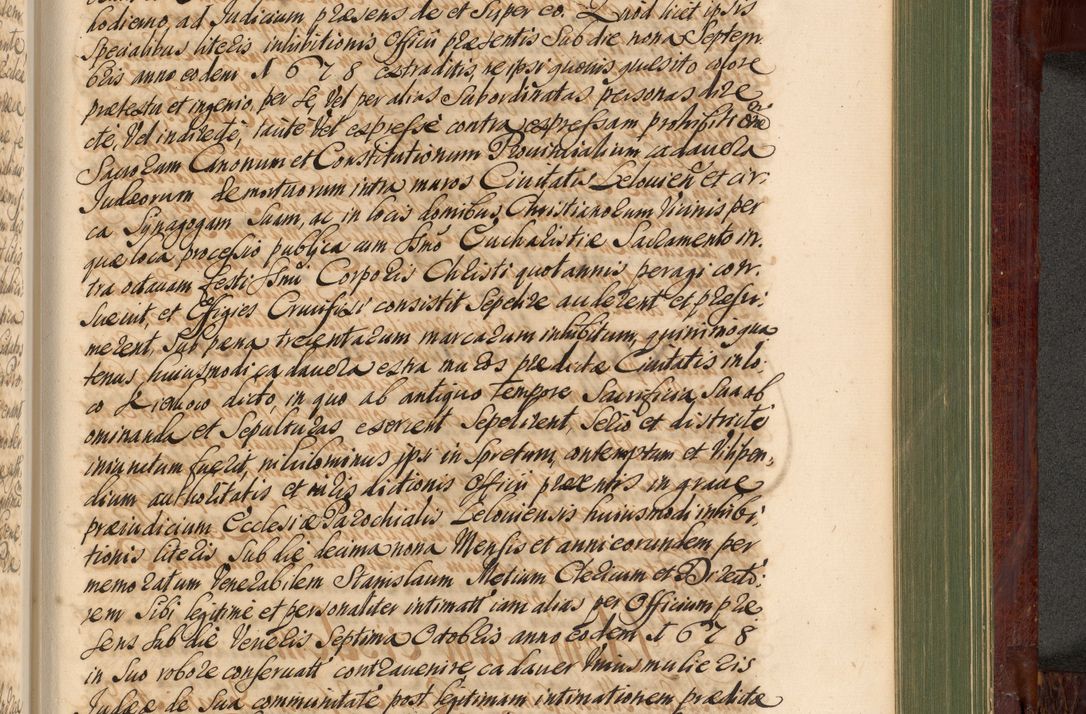 hodierno, ad Judicium præsens de et super eo. Quod licet ipsis
specialibus literis inhibitionis Officii præsentis sub die nona Septem
bris anno eodem 1678 extraditis, ne ipsi quovis quesito colore
prætextu et ingenio, per se, vel per alias subordinatas personas dire
cté, vel indirecté, tacité vel expressé contra expressam prohibitionē
Sacrorum Canonum et Constitutionum Provincialium cadavera
Judæorum demortuorum intra muros Civitatis Leloviens et cir
ca Synagogam suam, ac in locis domibus Christianorum vicinis per
quæ loca processio publica cum Ssmō Eucharistiæ Sacramento in
tra octavam Festi Ssmi Corporis Christi quotannis peragi con
suevit, et Effigies Crucifixi consistit sepelire auderent et præsu
merent, sub pæna trecentarum marcarum inhibitum, quinimo qua
tenus huiusmodi cadavera extra muros prædictæ Civitatis in lo
co dicto, in quo ab antiquo tempore Sacrificia sua ab
ominanda et Sepulturas exercent sepelirent, serio et districté
iniunctum fuerit, nihilominus ipsi in spretum, contemptum et vilipen
dium authoritatis et iurisdictionis Officii præsentis in grave
præiudicium Ecclesiæ Parochialis Leloviensis huiusmodi inhibi
tionis literis sub die decima nona Mensis et anni eorundem per
memoratum Venerabilem Stanislaum Clericum et Directo
rem sibi legitimé et personaliter intimatt iam alias per Officium præ
sens sub die Veneris Septima Octobris anno eodem 1678
in suo robore conservatt contravenire cadaver unius mulieris
Judææ de sua communitate post legitimam intimationem prædictæ